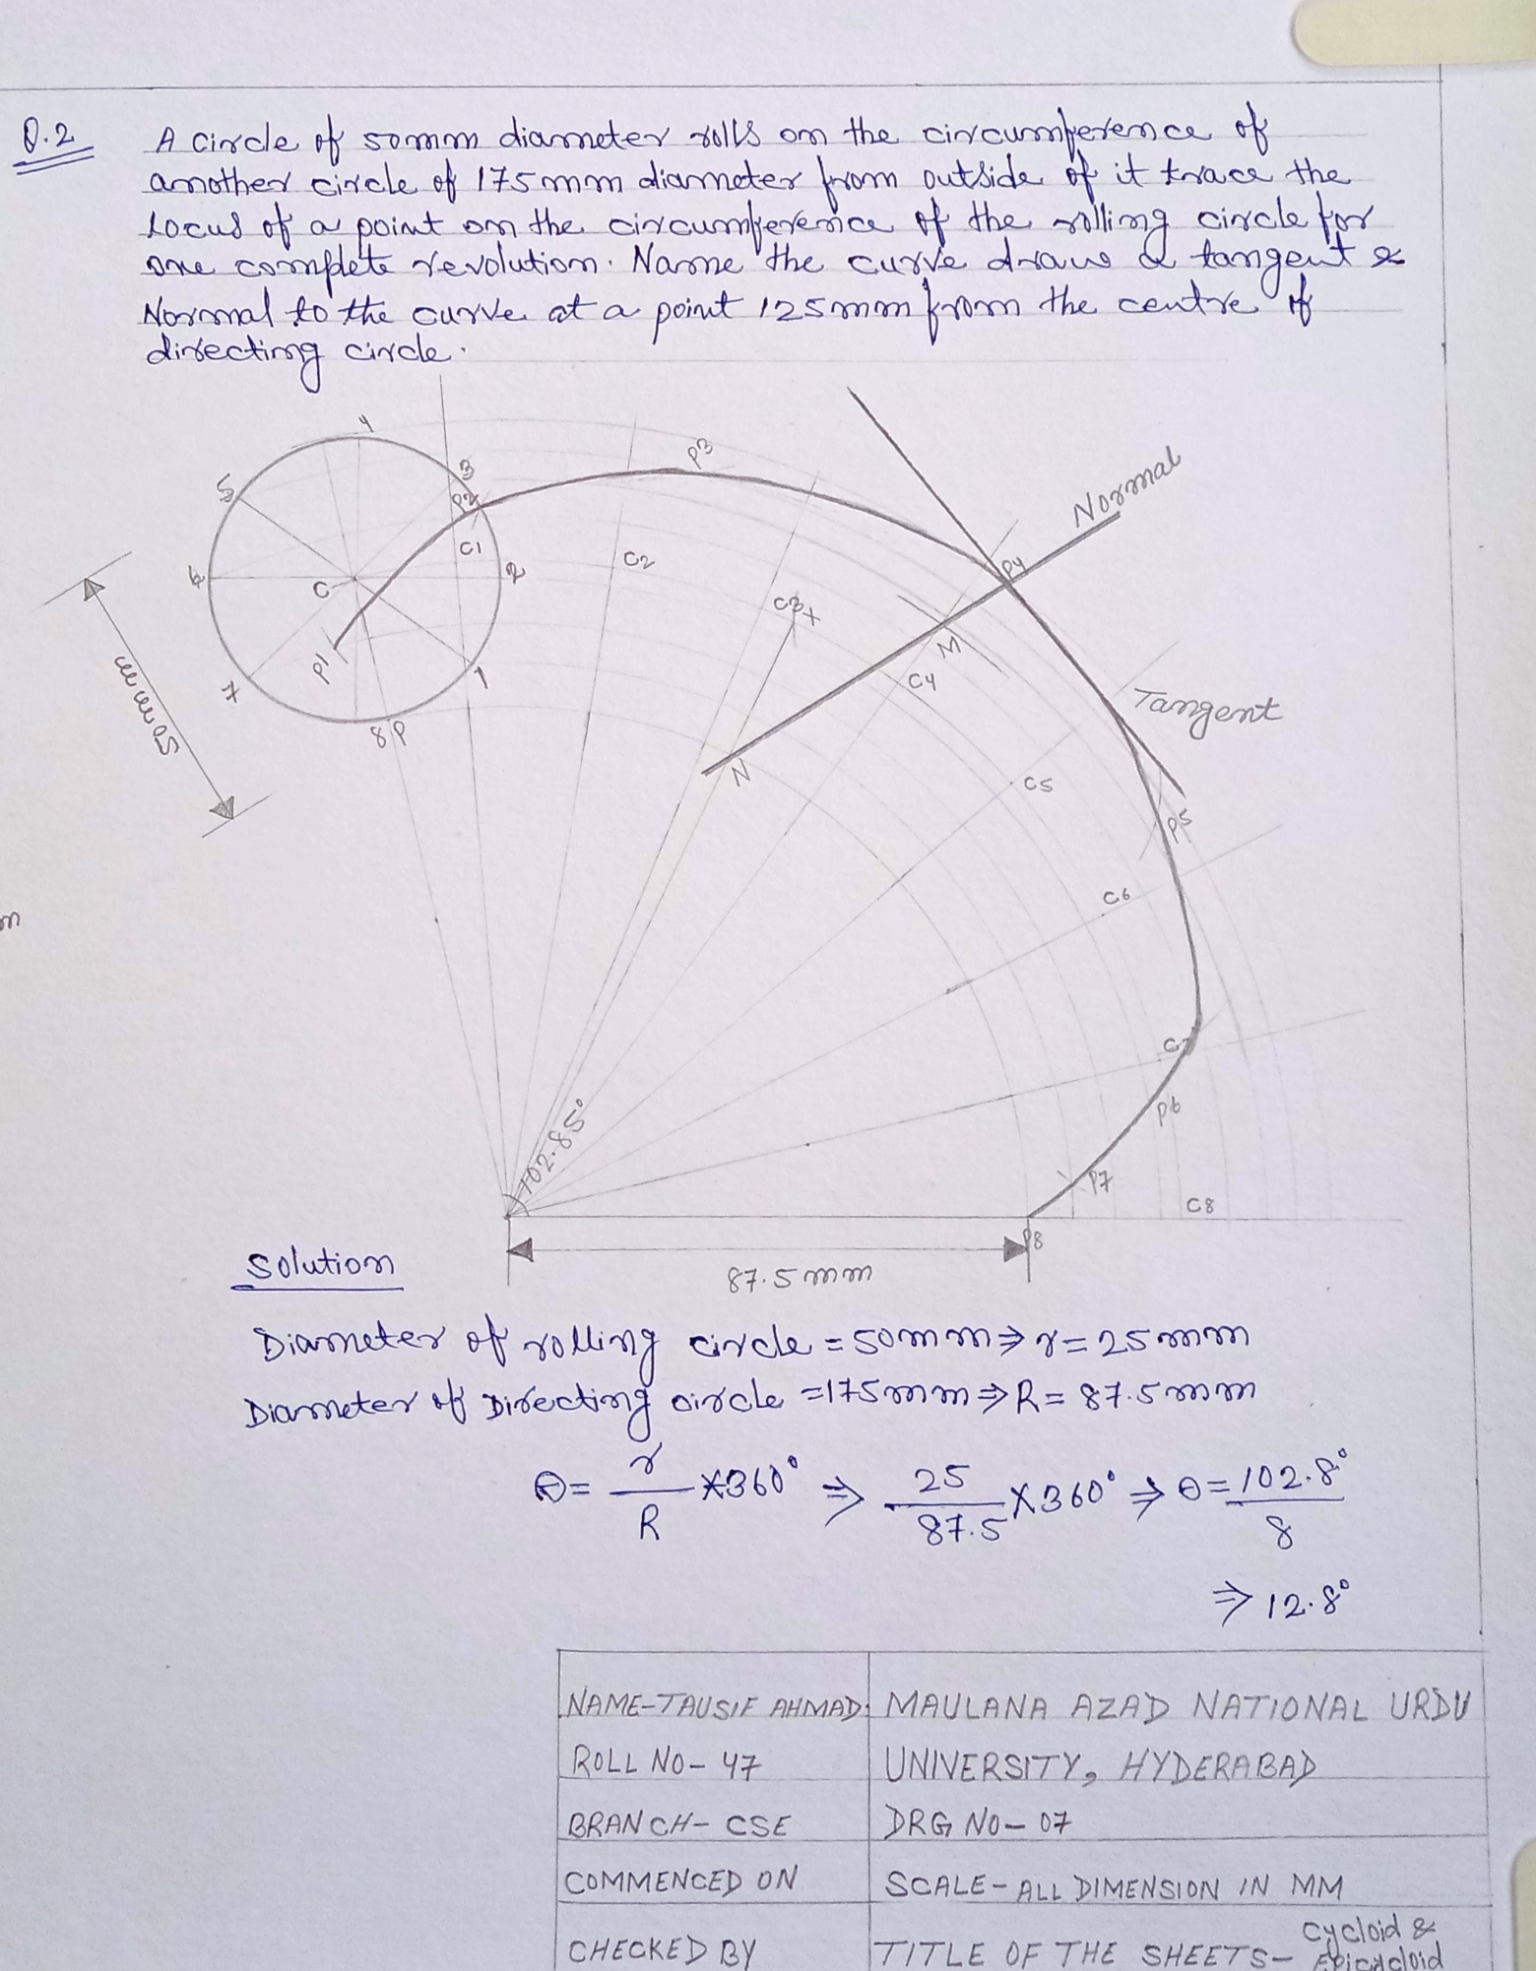 Q.2 A circle of 50mm diameter rolls on the circumference of
another circle of 175mm diameter from outside of it trace the
Locus of a point on the circumference of the rolling circle for
one complete revolution. Name the curve draw a tangent &
Normal to the curve at a point 125mm from the centre of
directing circle.
4
5
3
P2
P3
Normal
6
C
C1
2
C2
P4
C3
X
M
P1
7
1
C4
Tangent
50mm
8
P
N
C5
P5
C6
m
C7
P6
102.85°
P7
C8
P8
87.5mm
Solution
Diameter of rolling circle = 50mm ⇒ r = 25mm
Diameter of Directing circle = 175mm ⇒ R = 87.5mm
θ = r/R × 360° ⇒ 25/87.5 × 360° ⇒ θ = 102.8°/8
⇒ 12.8°
NAME-TAUSIF AHMAD. MAULANA AZAD NATIONAL URDU
ROLL NO- 47 UNIVERSITY, HYDERABAD
BRANCH- CSE DRG NO- 07
COMMENCED ON SCALE- ALL DIMENSION IN MM
CHECKED BY TITLE OF THE SHEETS- Cycloid &
Epicycloid